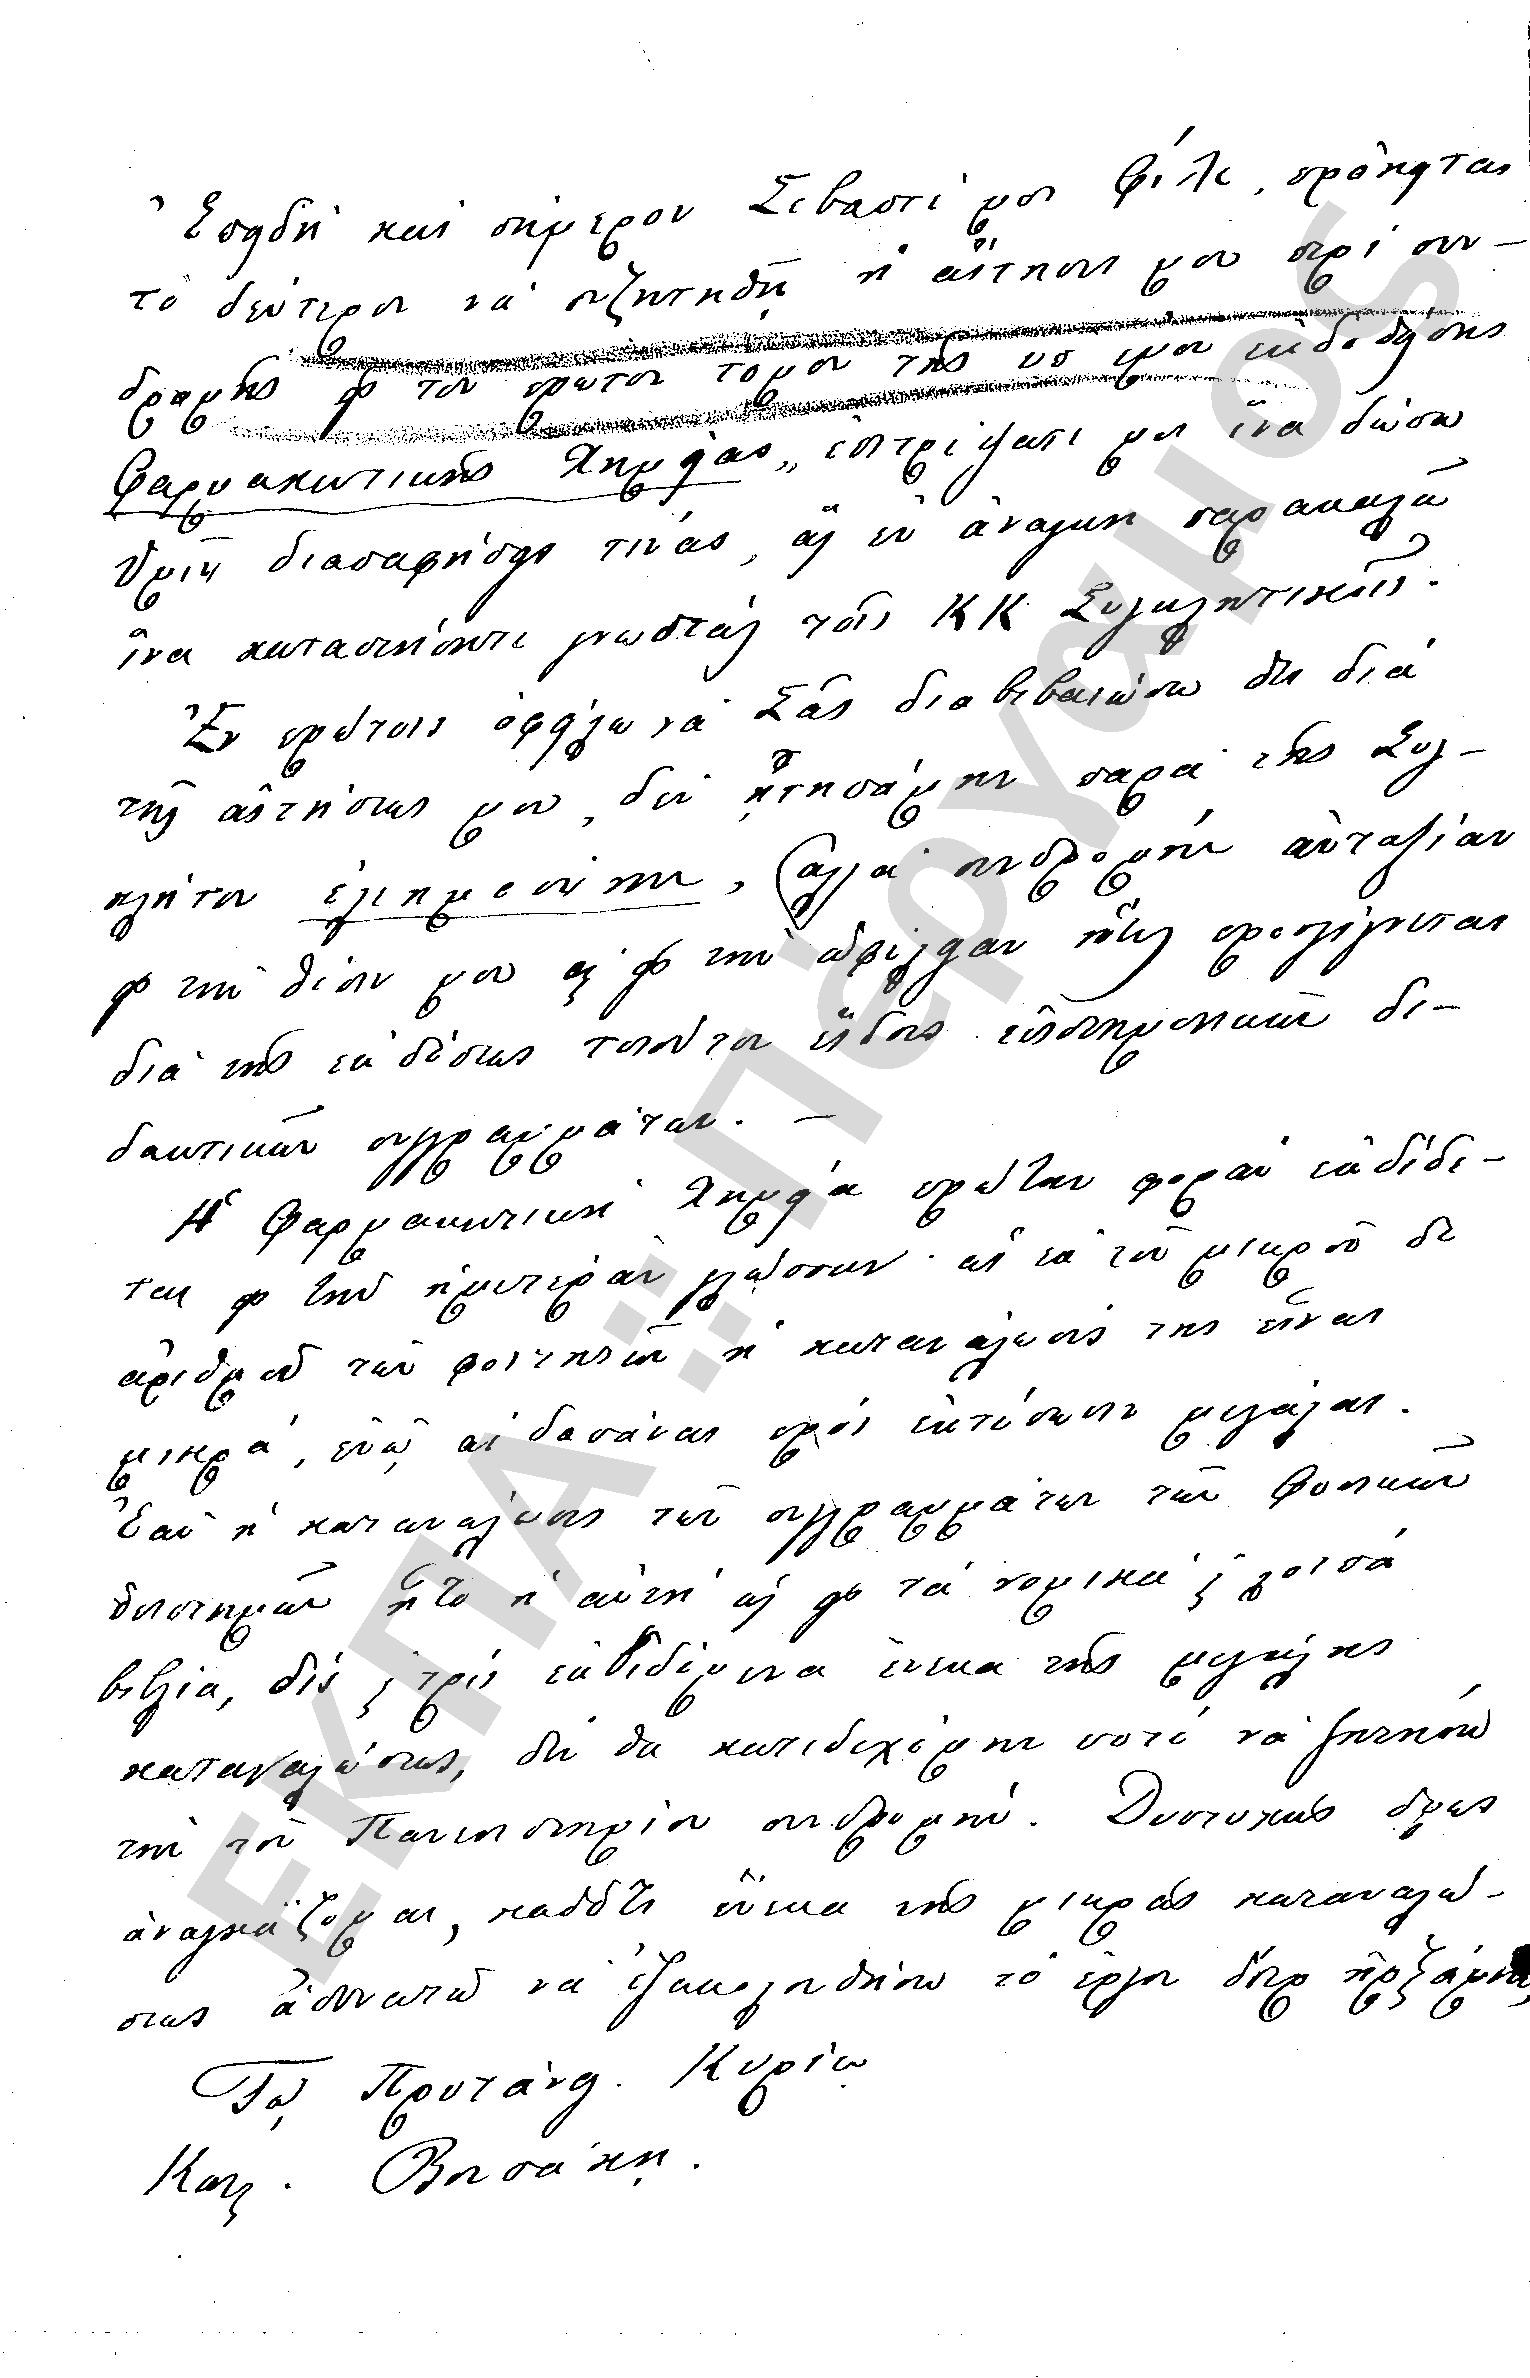 Ἐπειδὴ καὶ σήμερον Σεβαστέ μοι Φίλε, πρόκειται
τὸ δεύτερον νὰ συζητηθῇ ἡ αἴτησίς μου περὶ συν-
δρομῆς εἰς τὸν πρῶτον τόμον τῆς ὑπ' ἐμοῦ ἐκδοθείσης
Φαρμακευτικῆς Χημείας, ἐπιτρέψατέ μοι ἵνα δώσω
Ὑμῖν διασαφήσεις τινάς, ἃς ἐν ἀνάγκῃ παρακαλῶ
ἵνα καταστήσητε γνωστὰς τοῖς ΚΚ Συγκλητικοῖς.
Ἐν πρώτοις ὀφείλω νὰ Σᾶς διαβεβαιώσω ὅτι διὰ
τῆς αἰτήσεώς μου, δὲν ᾐτησάμην παρὰ τῆς Συγ-
κλήτου ἐλεημοσύνην, ἀλλὰ συνδρομὴν ἀνταξίαν
εἰς τὴν θέσιν μου καὶ εἰς τὴν ὠφέλειαν ἥτις προσγίγνεται
διὰ τῆς ἐκδόσεως τοιούτου εἴδους ἐπιστημονικῶν δι-
δακτικῶν συγγραμμάτων. —
Ἡ Φαρμακευτικὴ Χημεία πρώτην φορὰν ἐκδίδε-
ται εἰς τὴν ἡμετέραν γλῶσσαν· ὡς ἐκ τοῦ μικροῦ δὲ
ἀριθμοῦ τῶν φοιτητῶν ἡ κατανάλωσίς της εἶναι
μικρά, ἐνῷ αἱ δαπάναι πρὸς ἐκτύπωσιν μεγάλαι.
Ἐὰν ἡ κατανάλωσις τῶν συγγραμμάτων τῶν Φυσικῶν
Ἐπιστημῶν ἦτο ἡ αὐτὴ ὡς εἰς τὰ νομικὰ καὶ λοιπὰ
βιβλία, δὶς καὶ τρὶς ἐκδιδόμενα ἕνεκα τῆς μεγάλης
καταναλώσεως, δὲν θὰ κατεδεχόμην ποτὲ νὰ ζητήσω
τὴν τοῦ Πανεπιστημίου συνδρομήν. Δυστυχῶς ὅμως
ἀναγκάζομαι, καθότι ἕνεκα τῆς μικρᾶς καταναλώ-
σεως ἀδυνατῶ νὰ ἐξακολουθήσω τὸ ἔργον ὅπερ ἠρξάμην,
Τῷ Πρυτάνει Κυρίῳ
Κωνς. Βουσάκῃ.
ΕΚΠΑ: Πέργαμος